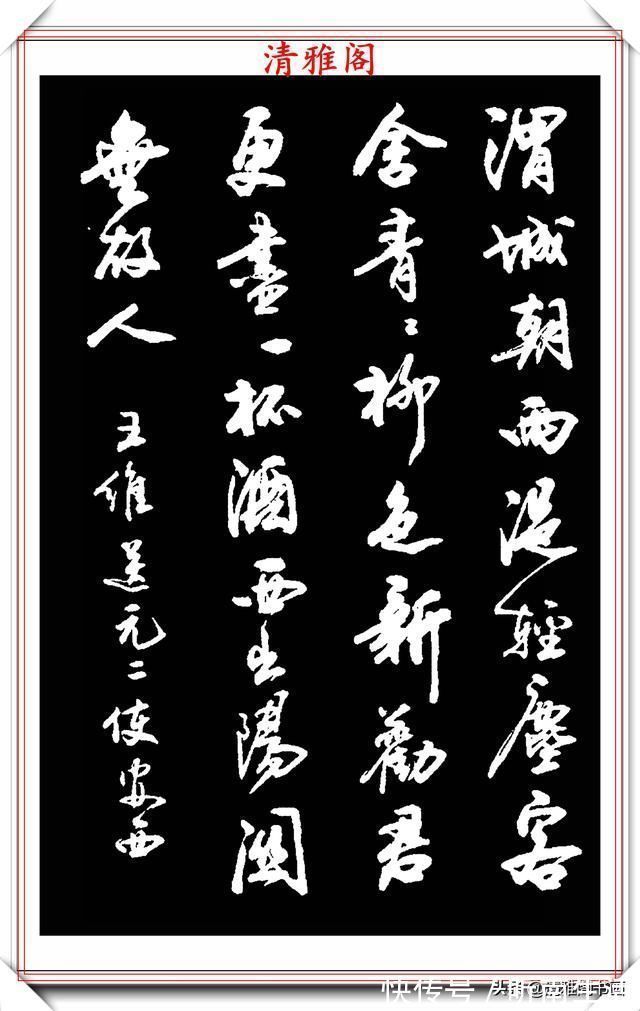 清雅阁
渭城朝雨浥輕塵客
舍青々柳色新勸君
更盡一杯酒西出陽關
無故人 王維送元二使安西
快传号